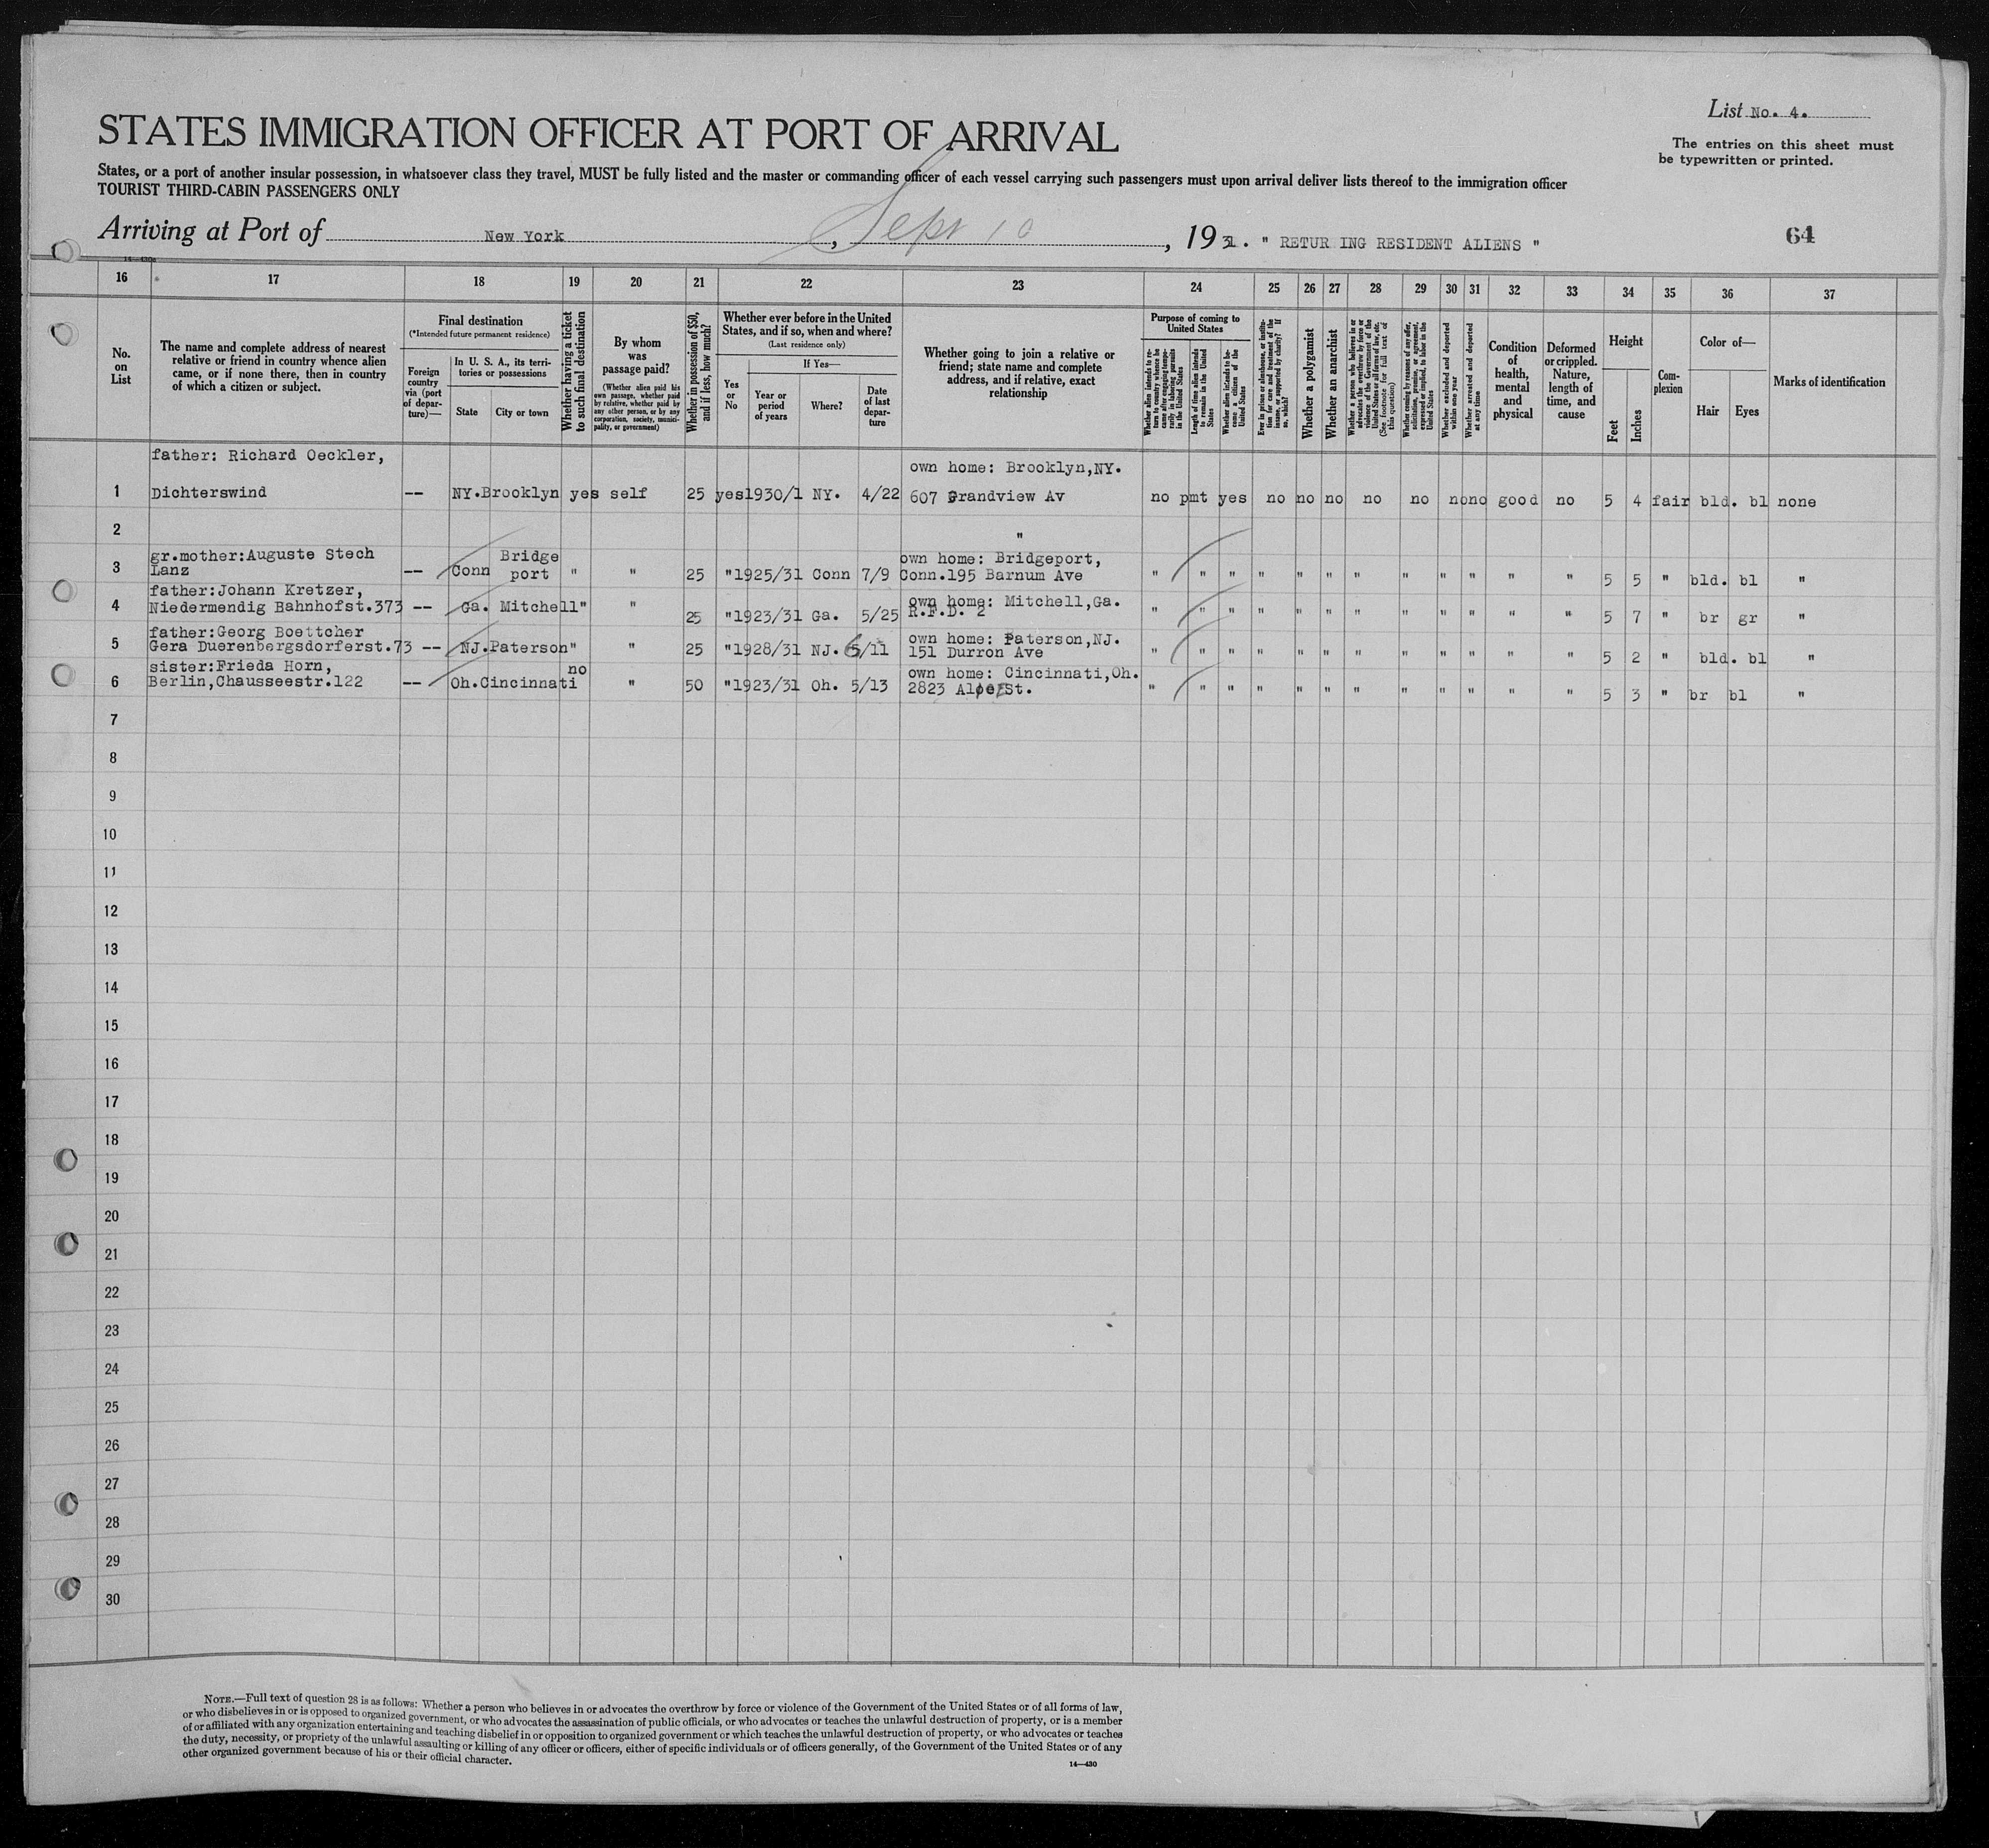 List No. 4.
STATES IMMIGRATION OFFICER AT PORT OF ARRIVAL
The entries on this sheet must
be typewritten or printed.
States, or a port of another insular possession, in whatsoever class they travel, MUST be fully listed and the master or commanding officer of each vessel carrying such passengers must upon arrival deliver lists thereof to the immigration officer
TOURIST THIRD-CABIN PASSENGERS ONLY
Arriving at Port of New York, Sept 10, 1931. " RETUR ING RESIDENT ALIENS "
64
16 17 18 19 20 21 22 23 24 25 26 27 28 29 30 31 32 33 34 35 36 37
No.
on
List
The name and complete address of nearest
relative or friend in country whence alien
came, or if none there, then in country
of which a citizen or subject.
Final destination
(*Intended future permanent residence)
Foreign
country
via (port
of depar-
ture)—
In U. S. A., its terri-
tories or possessions
State City or town
Whether having a ticket
to such final destination
By whom
was
passage paid?
(Whether alien paid his
own passage, whether paid
by relative, whether paid by
any other person, or by any
corporation, society, munici-
pality, or government)
Whether in possession of $50,
and if less, how much?
Whether ever before in the United
States, and if so, when and where?
(Last residence only)
Yes
or
No
If Yes—
Year or
period
of years
Where?
Date
of last
depar-
ture
Whether going to join a relative or
friend; state name and complete
address, and if relative, exact
relationship
Purpose of coming to
United States
Whether alien intends to re-
turn to country whence he
came after engaging tempo-
rarily in laboring pursuits
in the United States
Length of time alien intends
to remain in the United
States
Whether alien intends to be-
come a citizen of the
United States
Ever in prison or almshouse, or institu-
tion for care and treatment of the
insane, or supported by charity? If
so, which?
Whether a polygamist
Whether an anarchist
Whether a person who believes in or
advocates the overthrow by force or
violence of the Government of the
United States or all forms of law, etc.
(See footnote for full text of
this question)
Whether coming by reasons of any offer,
solicitation, promise, or agreement,
expressed or implied, to labor in the
United States
Whether excluded and deported
within one year
Whether arrested and deported
at any time
Condition
of
health,
mental
and
physical
Deformed
or crippled.
Nature,
length of
time, and
cause
Height
Feet Inches
Com-
plexion
Color of—
Hair Eyes
Marks of identification
father: Richard Oeckler,
own home: Brooklyn,NY.
1 Dichterswind -- NY.Brooklyn yes self 25 yes1930/1 NY. 4/22 607 Grandview Av no pmt yes no no no no no nono good no 5 4 fair bld. bl none
2 "
gr.mother:Auguste Stech Bridge own home: Bridgeport,
3 Lanz -- Conn port " " 25 "1925/31 Conn 7/9 Conn.195 Barnum Ave " " " " " " " " " " " " 5 5 " bld. bl "
father:Johann Kretzer, own home: Mitchell,Ga.
4 Niedermendig Bahnhofst.373 -- Ga. Mitchell" " 25 "1923/31 Ga. 5/25 R.F.D. 2 " " " " " " " " " " " " 5 7 " br gr "
father:Georg Boettcher own home: Paterson,NJ.
5 Gera Duerenbergsdorferst.73 -- NJ.Paterson" " 25 "1928/31 NJ. 6/11 151 Durron Ave " " " " " " " " " " " " 5 2 " bld. bl "
sister:Frieda Horn, no own home: Cincinnati,Oh.
6 Berlin,Chausseestr.122 -- Oh.Cincinnati " 50 "1923/31 Oh. 5/13 2823 St. " " " " " " " " " " " " 5 3 " br bl "
7
8
9
10
11
12
13
14
15
16
17
18
19
20
21
22
23
24
25
26
27
28
29
30
NOTE.—Full text of question 28 is as follows: Whether a person who believes in or advocates the overthrow by force or violence of the Government of the United States or of all forms of law,
or who disbelieves in or is opposed to organized government, or who advocates the assassination of public officials, or who advocates or teaches the unlawful destruction of property, or is a member
of or affiliated with any organization entertaining and teaching disbelief in or opposition to organized government or which teaches the unlawful destruction of property, or who advocates or teaches
the duty, necessity, or propriety of the unlawful assaulting or killing of any officer or officers, either of specific individuals or of officers generally, of the Government of the United States or of any
other organized government because of his or their official character.
14—430